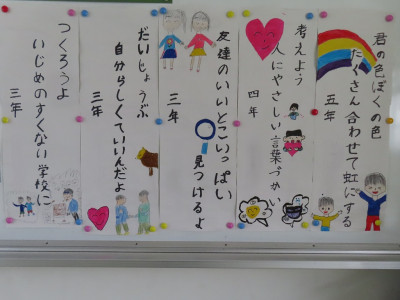 君の色ぼくの色
たくさん合わせて虹にする
五年
考えよう
人にやさしい言葉づかい
四年
友達のいいとこいっぱい
見つけるよ
三年
だいじょうぶ
自分らしくていいんだよ
三年
つくろうよ
いじめのすくない学校に
三年